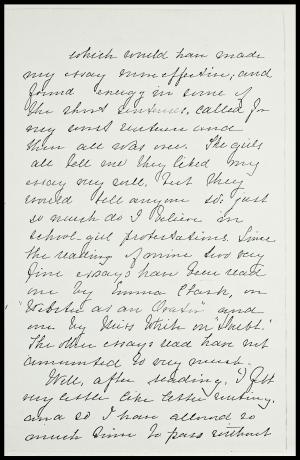 which would have made
my essay more effective; and
found energy in some of
the short sentences. Called for
my sentence and
then all was over. The girls
all tell me they liked my
essay very well. but they
would tell anyone so. just
so much do I believe in
school-girl protestations. Since
the reading of mine two very
fine essays have been read
one by Emma Clark, on
"Webster as an Orator" and
one by Miss White on
The other essays read have not
amounted to very much.
Well, after reading, I felt
very little like letter writing,
and so I have allowed so
much time to pass without